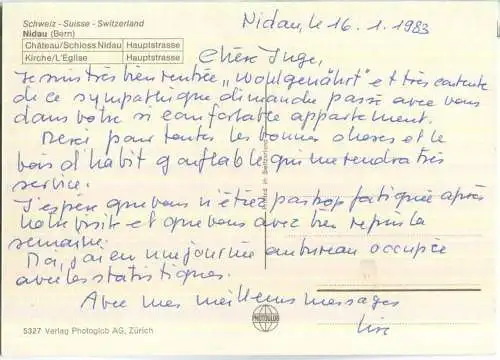 Schweiz - Suisse - Switzerland
Nidau (Bern)
Château/Schloss Nidau Hauptstrasse
Kirche/L'Eglise Hauptstrasse
Nidau, le 16. 1. 1983
Chère Inge,
Je suis très bien rentrée „Wohlgenährt" et très contente
de ce sympathique dimanche passé avec vous
dans votre si confortable appartement.
Merci pour toutes les bonnes choses et le
bois d'habit gonflable qui me rendra très
service.
J'espère que vous n'étiez pas trop fatiguée après
notre visite et que vous avez bien repris la
semaine.
Moi, j'ai eu une journée au bureau occupée
avec les statistiques.
Avec mes meilleurs messages
Lise
PHOTOGLOB
5327 Verlag Photoglob AG, Zürich